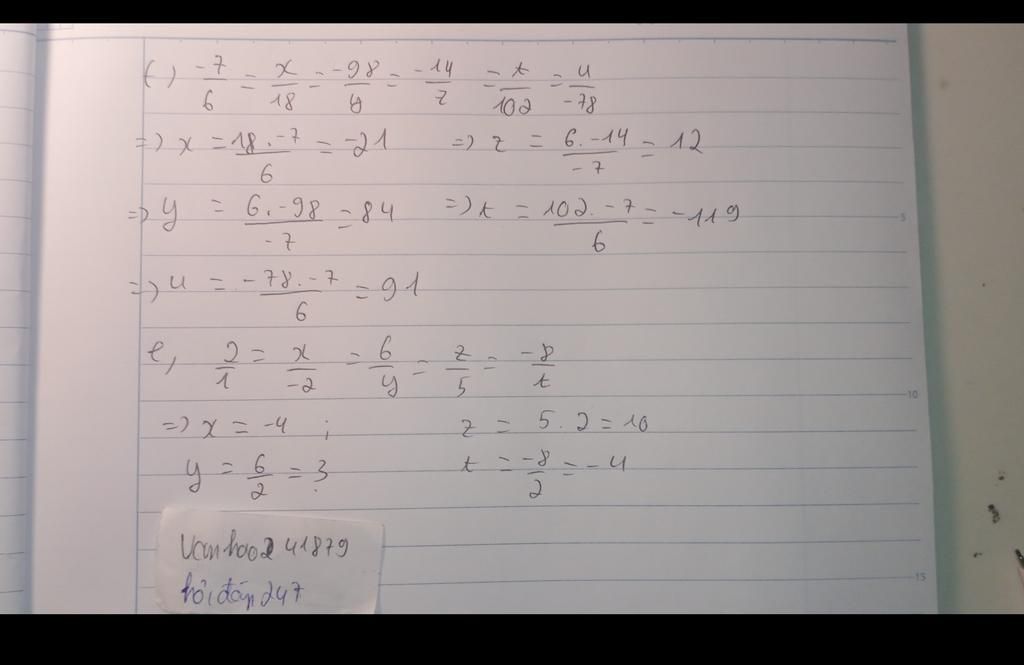 c) -7/6 = x/18 = -98/y = -14/z = t/102 = u/-78
=> x = 18.-7/6 = -21 => z = 6.-14/-7 = 12
=> y = 6.-98/-7 = 84 => t = 102.-7/6 = -119
=> u = -78.-7/6 = 91
e, 2/1 = x/-2 = 6/y = z/5 = -8/t
=> x = -4 ; z = 5.2 = 10
y = 6/2 = 3 t = -8/2 = -4
Vanhao241879
hỏi đáp 247
5
10
15